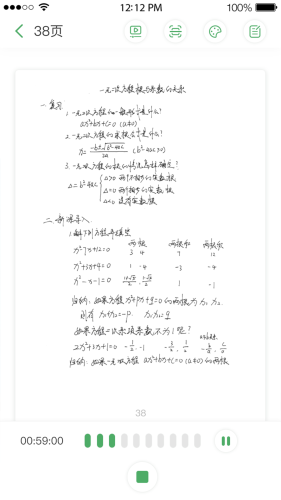 12:12 PM 100%
38页
一元二次方程根与系数的关系
一. 复习
1. 一元二次方程的一般形式是什么?
ax²+bx+c=0 (a≠0)
2. 一元二次方程的求根公式是什么?
x= -b±√b²-4ac / 2a (b²-4ac≥0)
3. 一元二次方程的根的情况怎样确定?
Δ=b²-4ac { Δ>0 两个不相等的实数根
Δ=0 两个相等的实数根
Δ<0 没有实数根
二. 新课导入
1. 解下列方程并填空
两根 两根和 两根积
x²-7x+12=0 3 4 7 12
x²+3x-4=0 1 -4 -3 -4
x²-x-1=0 1+√5/2, 1-√5/2 1 -1
归纳: 如果方程 x²+px+q=0 的两根为 x₁ x₂
则有 x₁+x₂=-p. x₁x₂=q
如果方程二次项系数不为1呢?
2x²+3x+1=0 -1/2 -1 -3/2
归纳: 如果一元二次方程 ax²+bx+c=0 (a≠0) 的两根
38
00:59:00